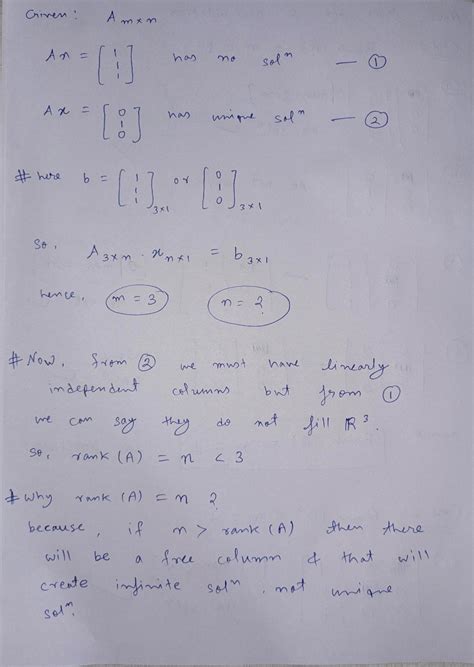 Given : A m×n
Ax = [1 1 1] has no solⁿ — ①
Ax = [0 1 0] has unique solⁿ — ②
# here b = [1 1 1] 3×1 or [0 1 0] 3×1
So, A 3×n . x n×1 = b 3×1
hence, m = 3 n = ?
# Now, from ② we must have linearly
independent columns but from ①
we can say they do not fill R³.
So, rank (A) = n < 3
# Why rank (A) = n ?
because, if n > rank (A) then there
will be a free column & that will
create infinite solⁿ. not unique
solⁿ.